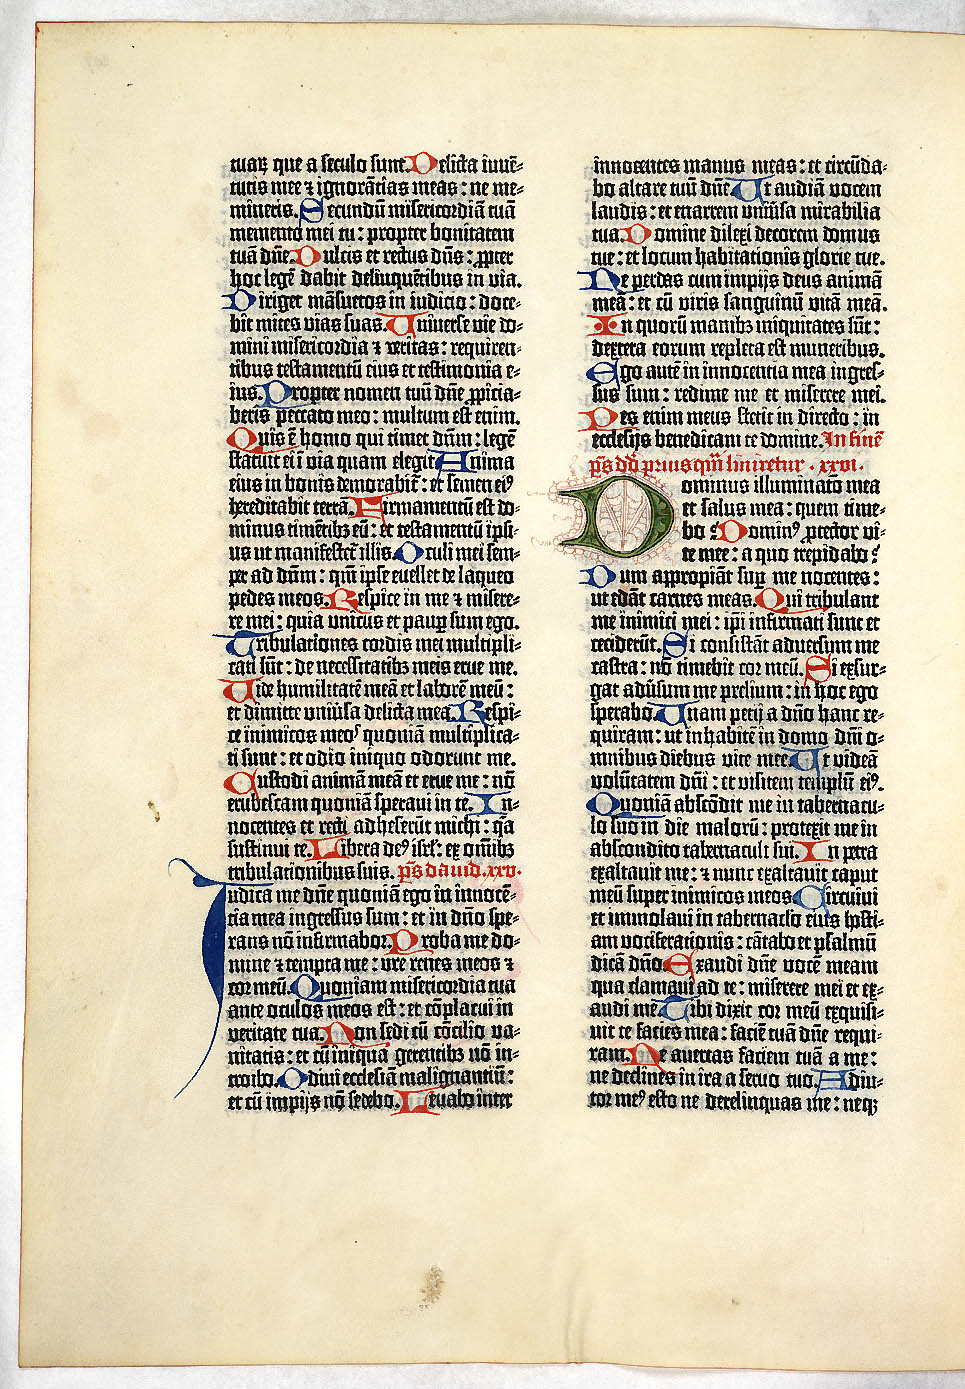 tuaꝝ que a seculo sunt. Delicta iuuē-
tutis mee ⁊ ignorātias meas : ne me-
mineris. Secundū misericordiā tuā
memento mei tu : propter bonitatem
tuā dn̄e. Dulcis et rectus dn̄s : ꝓpter
hoc legē dabit delinquētibus in via.
Diriget māsuetos in iudicio : doce-
bit mites vias suas. Uniuerse vie do-
mini misericordia ⁊ veritas : requiren-
tibus testamentū eius et testimonia e-
ius. Propter nomen tuū dn̄e ꝓpicia-
beris peccato meo : multum est enim.
Quis ē homo qui timet dn̄m : legē
statuit ei ī via quam elegit. Anima
eius in bonis demorabit᷑ : et semen eiꝰ
hereditabit terrā. Firmamentū est do-
minus timētibꝫ eū : et testamentū ipsi-
us ut manifestet᷑ illis. Oculi mei sem-
per ad dn̄m : qm̄ ipse euellet de laqueo
pedes meos. Respice in me ⁊ misere-
re mei : quia unicus et paup̲ sum ego.
Tribulationes cordis mei multipli-
cati sūt : de necessitatibꝫ meis erue me.
Vide humilitatē meā et laborē meū :
et dimitte uniūsa delicta mea. Respi-
ce inimicos meoſ quoniā multiplica-
ti sunt : et odio iniquo oderunt me.
Custodi animā meā et erue me : nō
erubescam quoniā speraui in te. In-
nocentes et recti adheserūt michi : q̄a
sustinui te. Libera deꝰ isrl̄ : ex om̄ibꝫ
tribulationibus suis. p̄s dauid. xxv.
Iudica me dn̄e quoniā ego in innocē-
tia mea ingressus sum : et in dn̄o spe-
rans nō infirmabor. Proba me do-
mine ⁊ tempta me : vre renes meos ⁊
cor meū. Quoniam misericordia tua
ante oculos meos est : et cōplacui in
veritate tua. Non sedi cū cōcilio va-
nitatis : et cū iniqua gerentibꝫ nō in-
troibo. Odiui ecclesiam malignantiū :
et cū impijs nō sedebo. Lauabo inter
innocentes manus meas : et circūda-
bo altare tuū dn̄e. Ut audiā vocem
laudis : et enarrem uniūsa mirabilia
tua. Domine dilexi decorem domus
tue : et locum habitationis glorie tue.
Ne perdas cum impijs deus animā
meā : et cū viris sanguinū vitā meā.
In quorū manibꝫ iniquitates sūt :
dextera eorum repleta est muneribus.
Ego autē in innocentia mea ingres-
sus sum : redime me et miserere mei.
Pes enim meus stetit in directo : in
ecclesijs benedicam te domine. In finē
p̄s dd̄ priusqm̄ liniretur . xxvi .
Dominus illuminatō mea
et salus mea : quem time-
bo ? Dominꝰ ꝓtector vi-
te mee : a quo trepidabo ?
Dum appropiāt sup̲ me nocentes :
ut edāt carnes meas. Qui tribulant
me inimici mei : ip̄i infirmati sunt et
ceciderūt. Si consistāt aduersum me
castra : nō timebit cor meū. Si exsur-
gat adūsum me prelium : in hoc ego
sperabo. Unam petij a dn̄o hanc re-
quiram : ut inhabitē in domo dn̄i o-
mnibus diebus vite mee. Ut videā
volūtatem dn̄i : et visitem templū eiꝰ.
Quoniā abscōdit me in tabernacu-
lo suo in die malorū : protexit me in
abscondito tabernaculi sui. In petra
exaltauit me : ⁊ nunc exaltauit caput
meū super inimicos meos. Circuiui
et immolaui in tabernac̄lo eius hosti-
am vociferationis : cātabo et psalmū
dicā dn̄o. Exaudi dn̄e vocē meam
qua clamaui ad te : miserere mei et ex-
audi me. Tibi dixit cor meū exquisi-
uit te facies mea : faciē tuā dn̄e requi-
ram. Ne auertas faciem tuā a me :
ne declines in ira a seruo tuo. Adiu-
tor meꝰ esto ne derelinquas me : neqꝫ